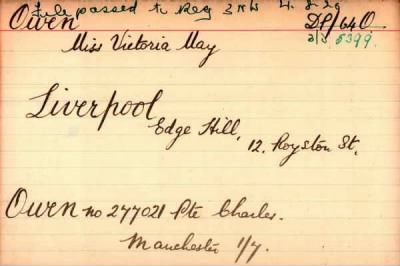 File passed to Reg 3 NW 4.2.29
Owen DP/640
2/3 5399.
Miss Victoria May
Liverpool
Edge Hill,
12. Royston St.
Owen no 277021 Pte Charles.
Manchester 1/7.